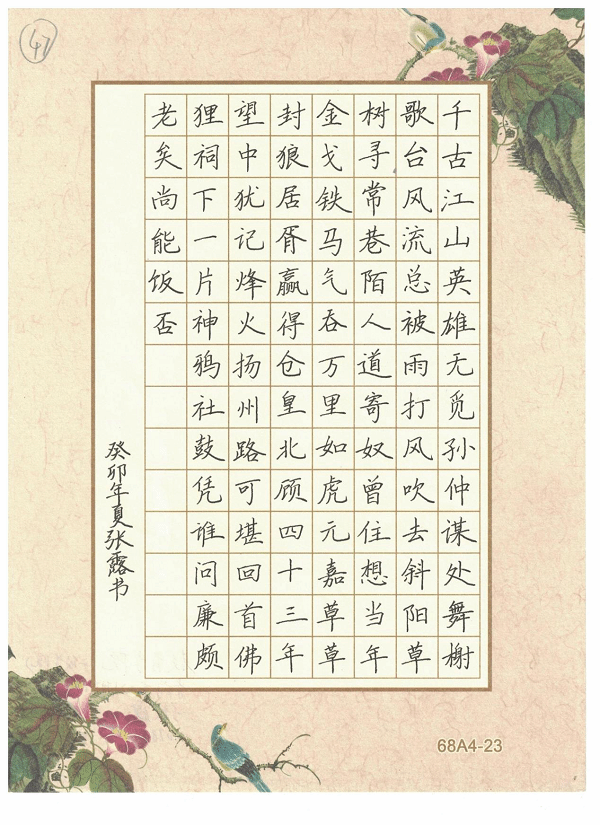 47
千古江山英雄无觅孙仲谋处舞榭
歌台风流总被雨打风吹去斜阳草
树寻常巷陌人道寄奴曾住想当年
金戈铁马气吞万里如虎元嘉草草
封狼居胥赢得仓皇北顾四十三年
望中犹记烽火扬州路可堪回首佛
狸祠下一片神鸦社鼓凭谁问廉颇
老矣尚能饭否
癸卯年夏张露书
68A4-23